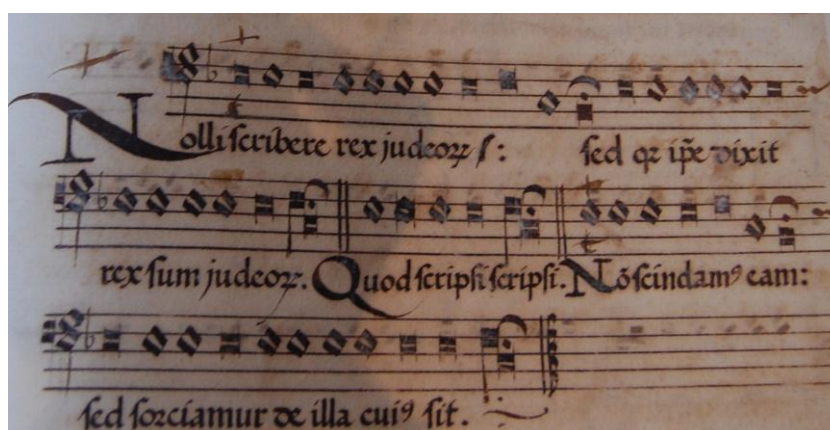 Nolli scribere rex judeoꝝ s: sed qꝛ ip̄e dixit
rex sum judeoꝝ. Quod scripsi scripsi. Nō scindamꝰ eam:
sed sorciamur de illa cuiꝰ sit.